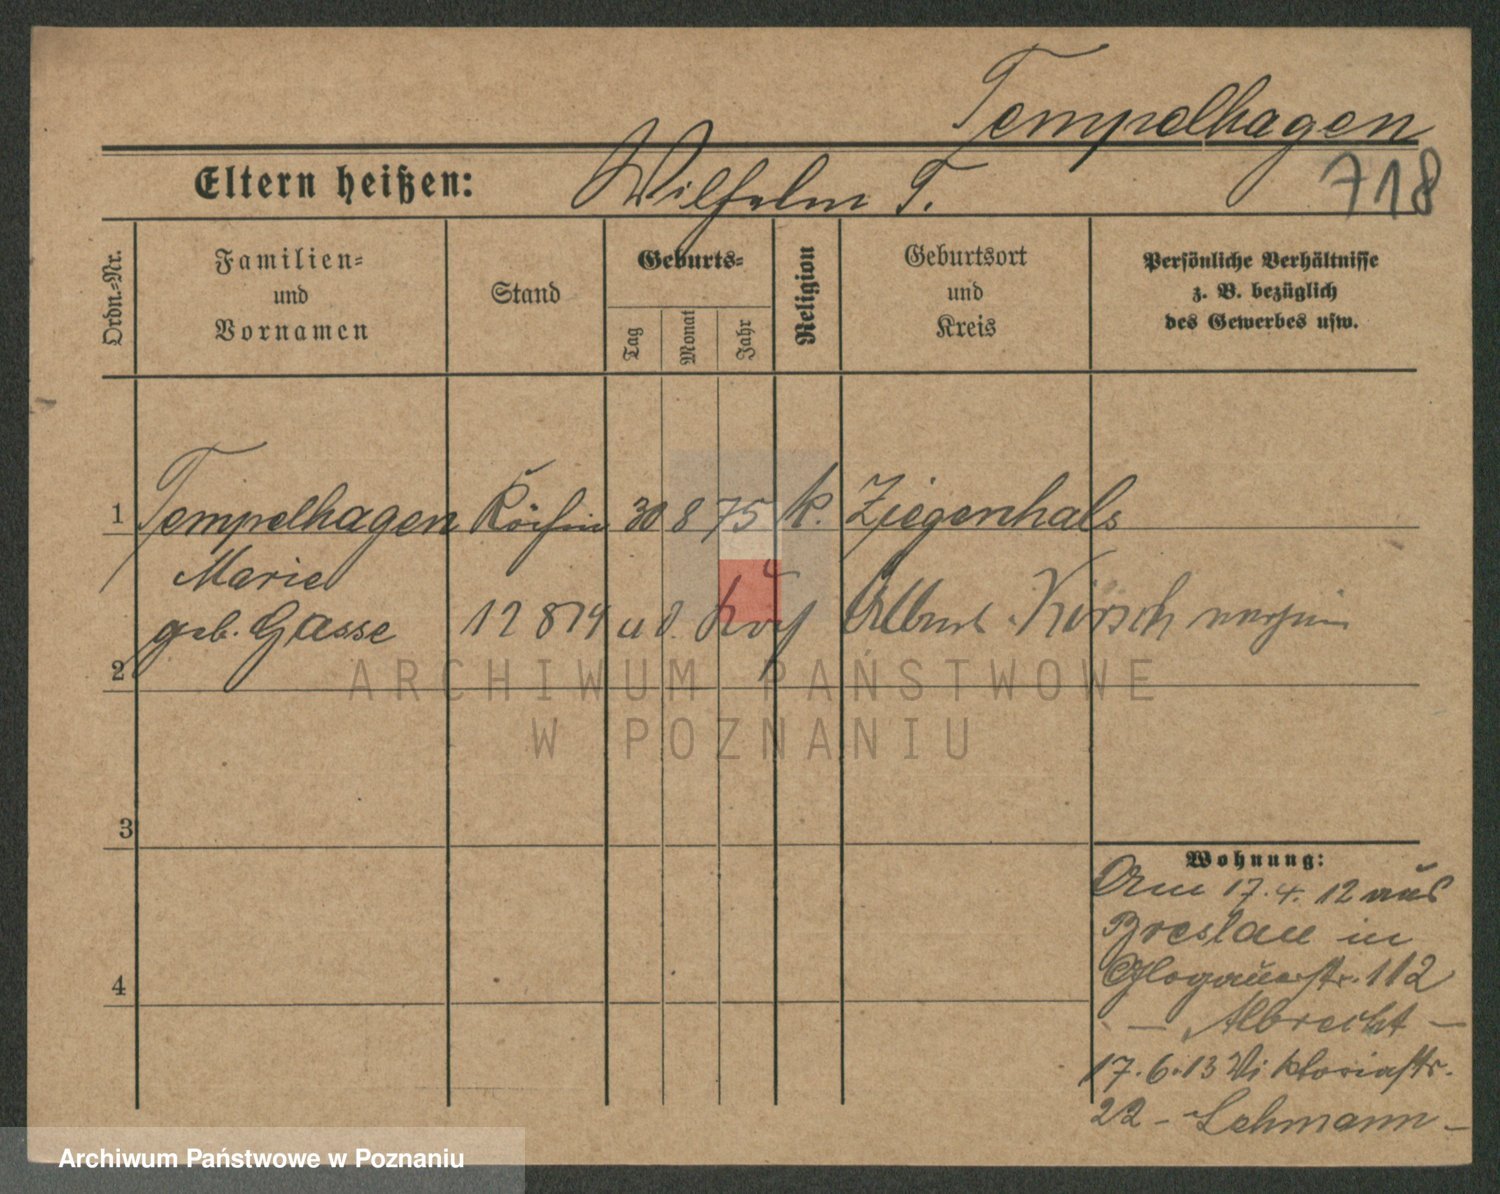 Tempelhagen
718
Eltern heißen: Wilhelm T.
Ordn.-Nr.
Familien-
und
Vornamen
Stand
Geburts-
Tag
Monat
Jahr
Religion
Geburtsort
und
Kreis
Persönliche Verhältnisse
z. B. bezüglich
des Gewerbes usw.
1 Tempelhagen Köchin 30 8 75 k. Ziegenhals
Marie
geb. Gasse 12 8 14 Albert Kirsch
2
ARCHIWUM PAŃSTWOWE
W POZNANIU
3
Wohnung:
Am 17.4.12 aus
Breslau in
Glogauerstr. 112
4
– Albrecht –
17.6.13 Viktoriastr.
22 – Lehmann –
Archiwum Państwowe w Poznaniu